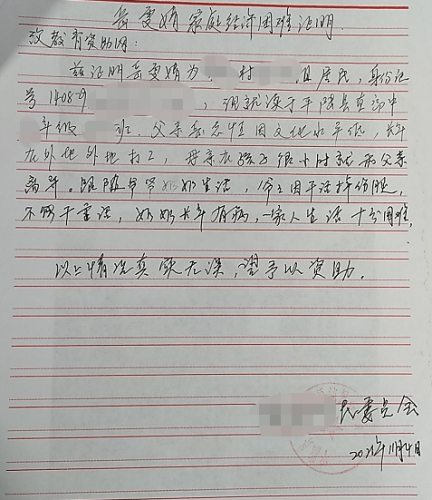 岳雯婧家庭经济困难证明
致教育资助网:
兹证明岳雯婧为 村 组居民,身份证
号1408 ,现就读于平陆县直初中
年级 班。父亲岳 因文化水平低,长年
在外地打工,母亲在孩子很小时就和父亲
离异。跟随爷爷奶奶生活,爷爷因干活摔伤腿,
不能干重活,奶奶长年有病,一家人生活十分困难,
以上情况真实无误,望予以资助.
民委员会